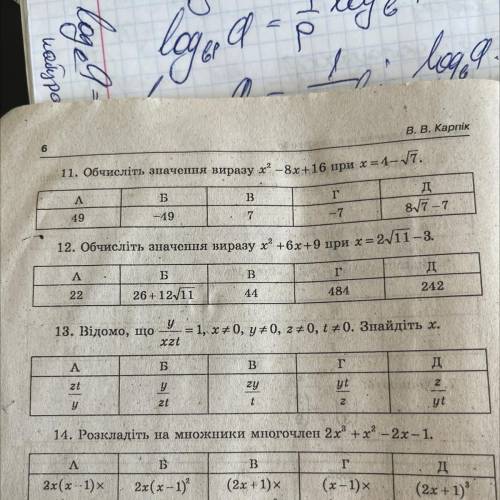 log_{b^p} a = 1/p log_b
log_b a =
6
В. В. Карпік
11. Обчисліть значення виразу x² −8x+16 при x = 4−√7.
А Б В Г Д
49 −49 7 −7 8√7 −7
12. Обчисліть значення виразу x² +6x+9 при x = 2√11 −3.
А Б В Г Д
22 26+12√11 44 484 242
13. Відомо, що y/xzt = 1, x≠0, y≠0, z≠0, t≠0. Знайдіть x.
А Б В Г Д
zt/y y/zt zy/t yt/z z/yt
14. Розкладіть на множники многочлен 2x³ + x² −2x−1.
А Б В Г Д
2x(x−1)× 2x(x−1)² (2x+1)× (x−1)× (2x+1)³